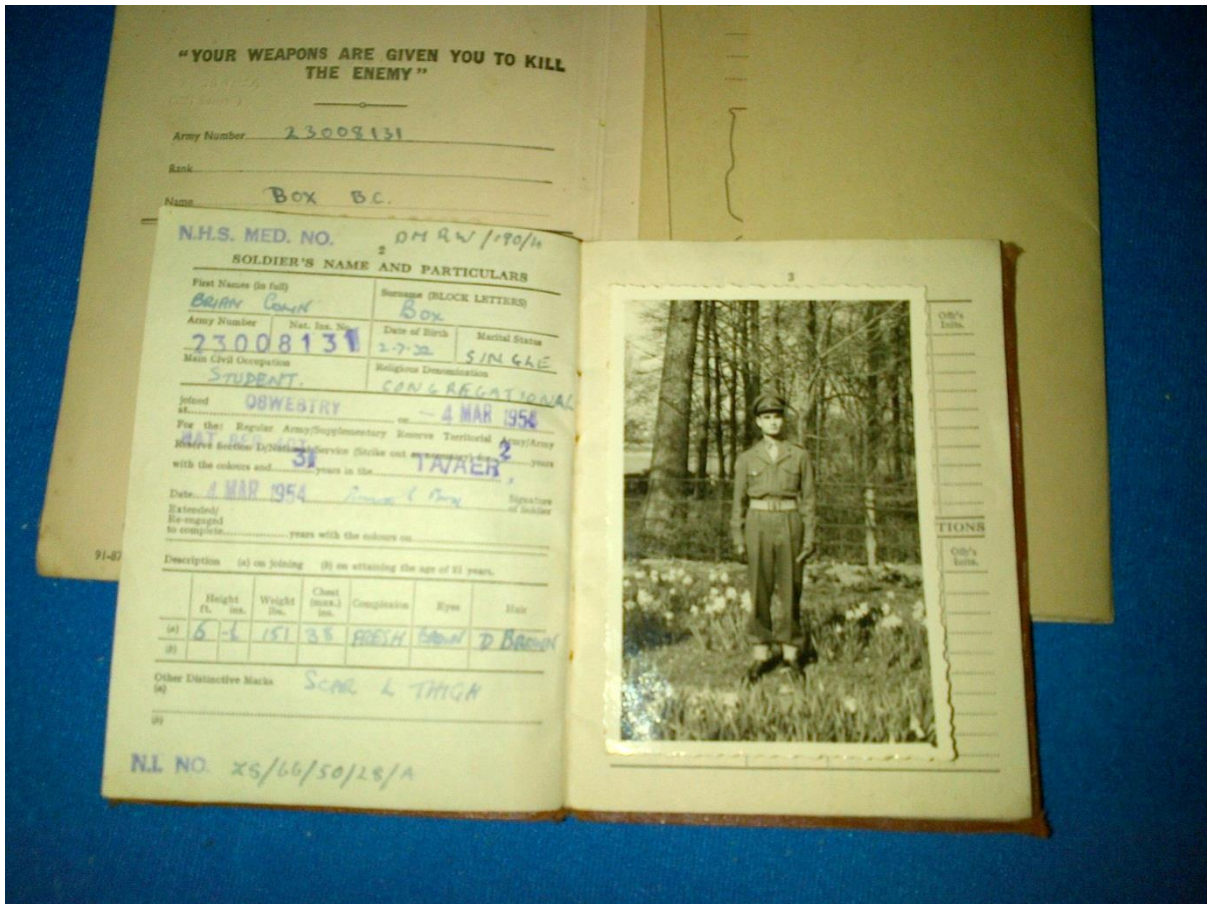 "YOUR WEAPONS ARE GIVEN YOU TO KILL
THE ENEMY"
Army Number 23008131
Rank
Name Box B.C.
91-87
N.H.S. MED. NO. DMRW/190/4
2
SOLDIER'S NAME AND PARTICULARS
First Names (in full) Surname (BLOCK LETTERS)
BRIAN COLIN Box
Army Number Nat. Ins. No. Date of Birth Marital Status
23008131 2-7-32 SINGLE
Main Civil Occupation Religious Denomination
STUDENT. CONGREGATIONAL
joined
at OSWESTRY on - 4 MAR 1954
For the: Regular Army/Supplementary Reserve Territorial Army/Army
Reserve Section D/National Service (Strike out as necessary) for 2 years
NAT. SER. ACT
with the colours and 3½ years in the TA/AER,
Date 4 MAR 1954 Signature
of Soldier
Extended/
Re-engaged
to complete years with the colours on
Description (a) on joining (b) on attaining the age of 21 years.
Height Weight Chest Complexion Eyes Hair
ft. ins. lbs. (max.)
ins.
(a) 6 -1 151 38 FRESH BROWN D BROWN
(b)
Other Distinctive Marks SCAR L THIGH
(a)
(b)
N.I. NO. ZS/66/50/28/A
3
Offr's
Inits.
TIONS
Offr's
Inits.